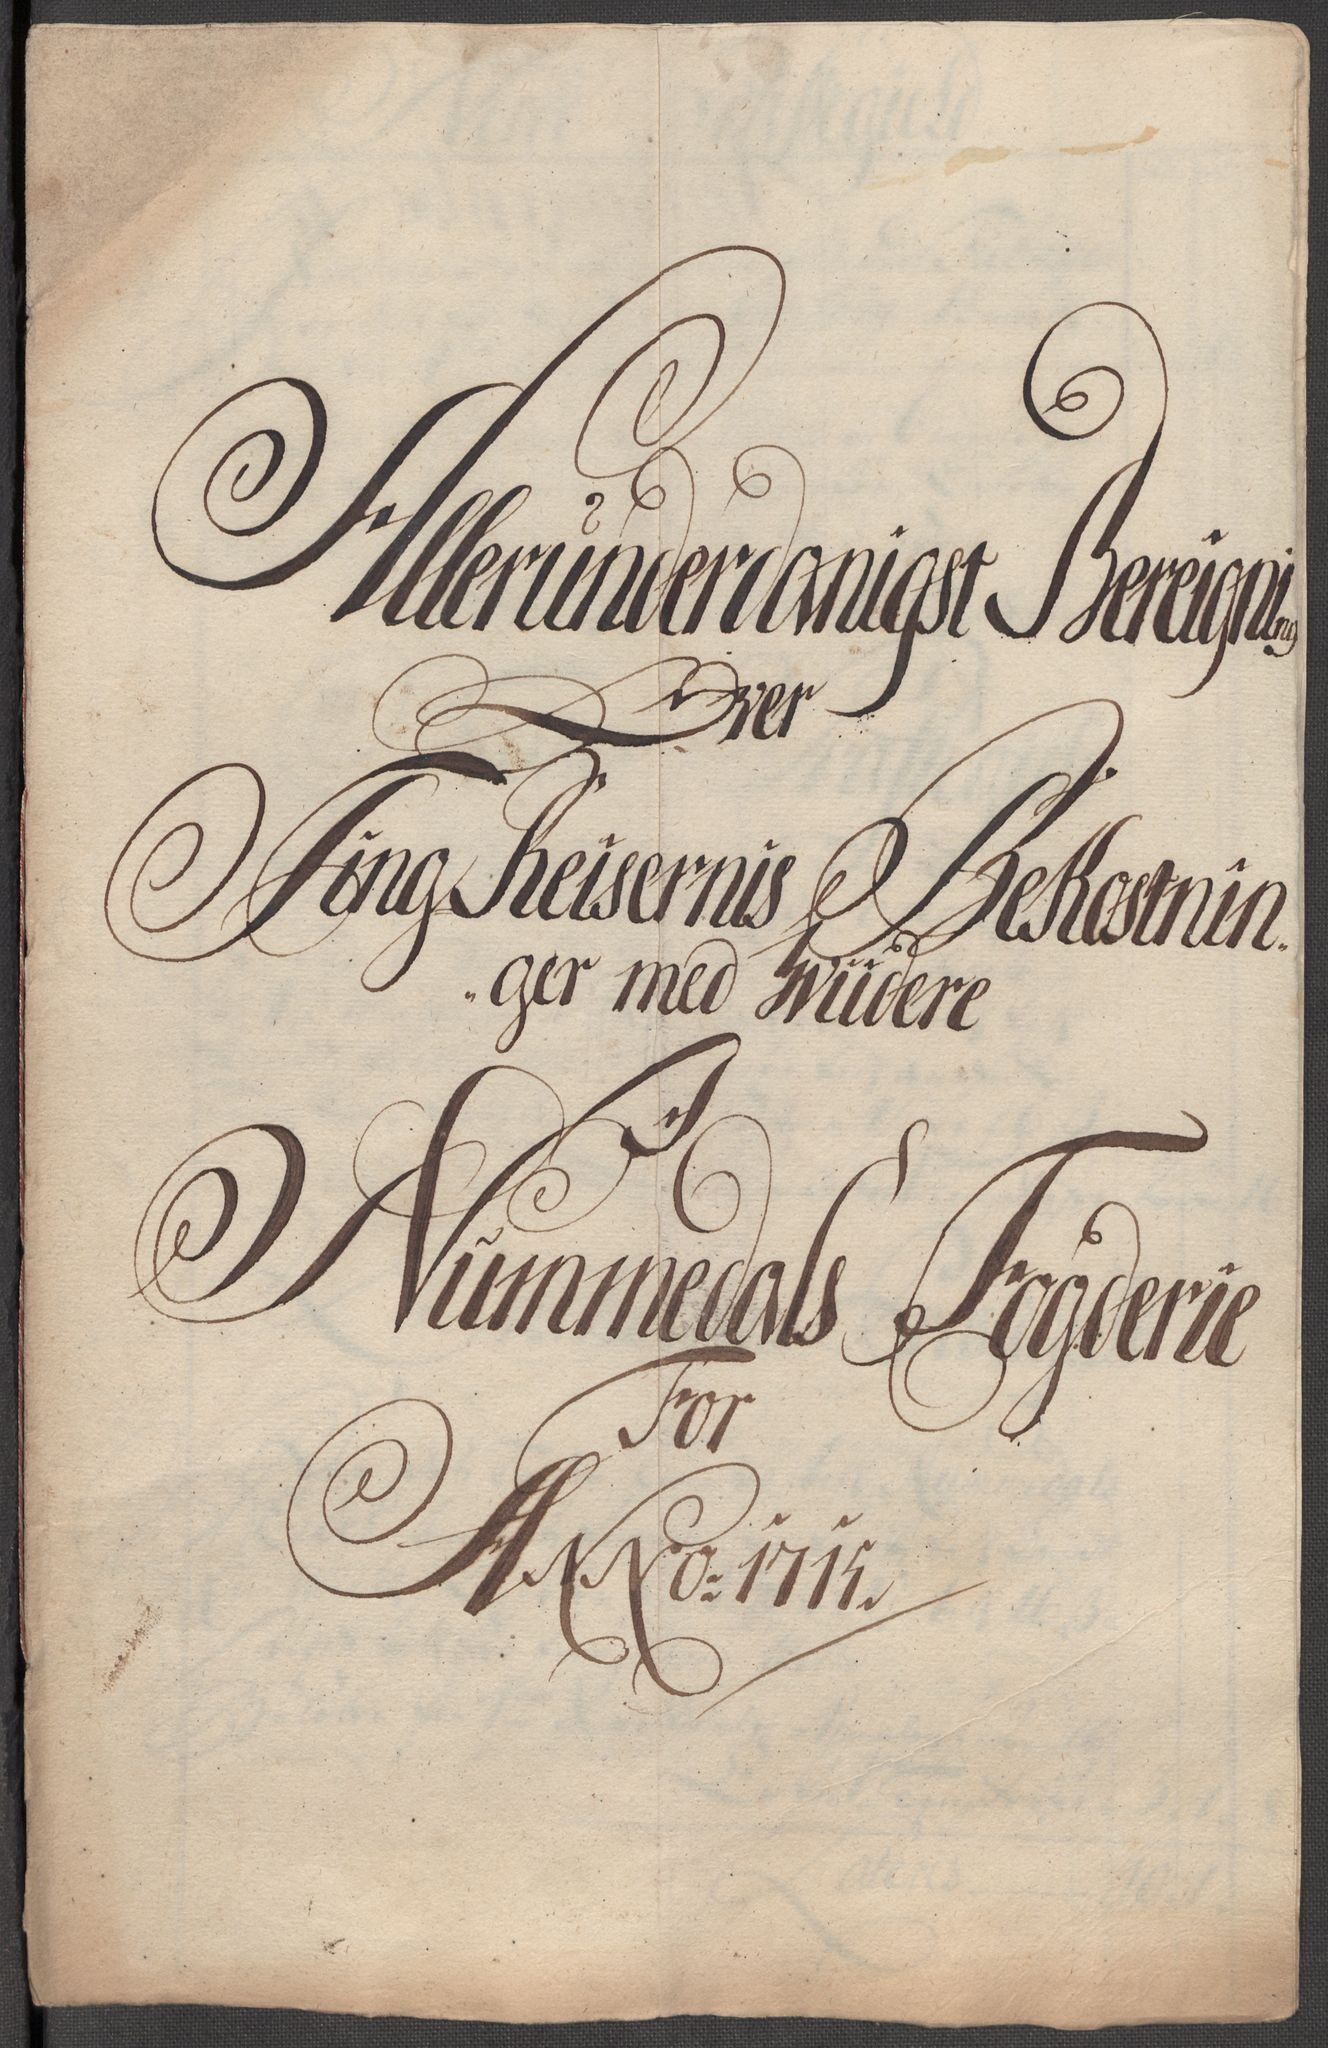 Alleründerdanigst Bereigning
Over
Ting Reisernis Bekostnin=
=ger med widere
I
Nümmedals Fogderie
For
Anno: 1715.